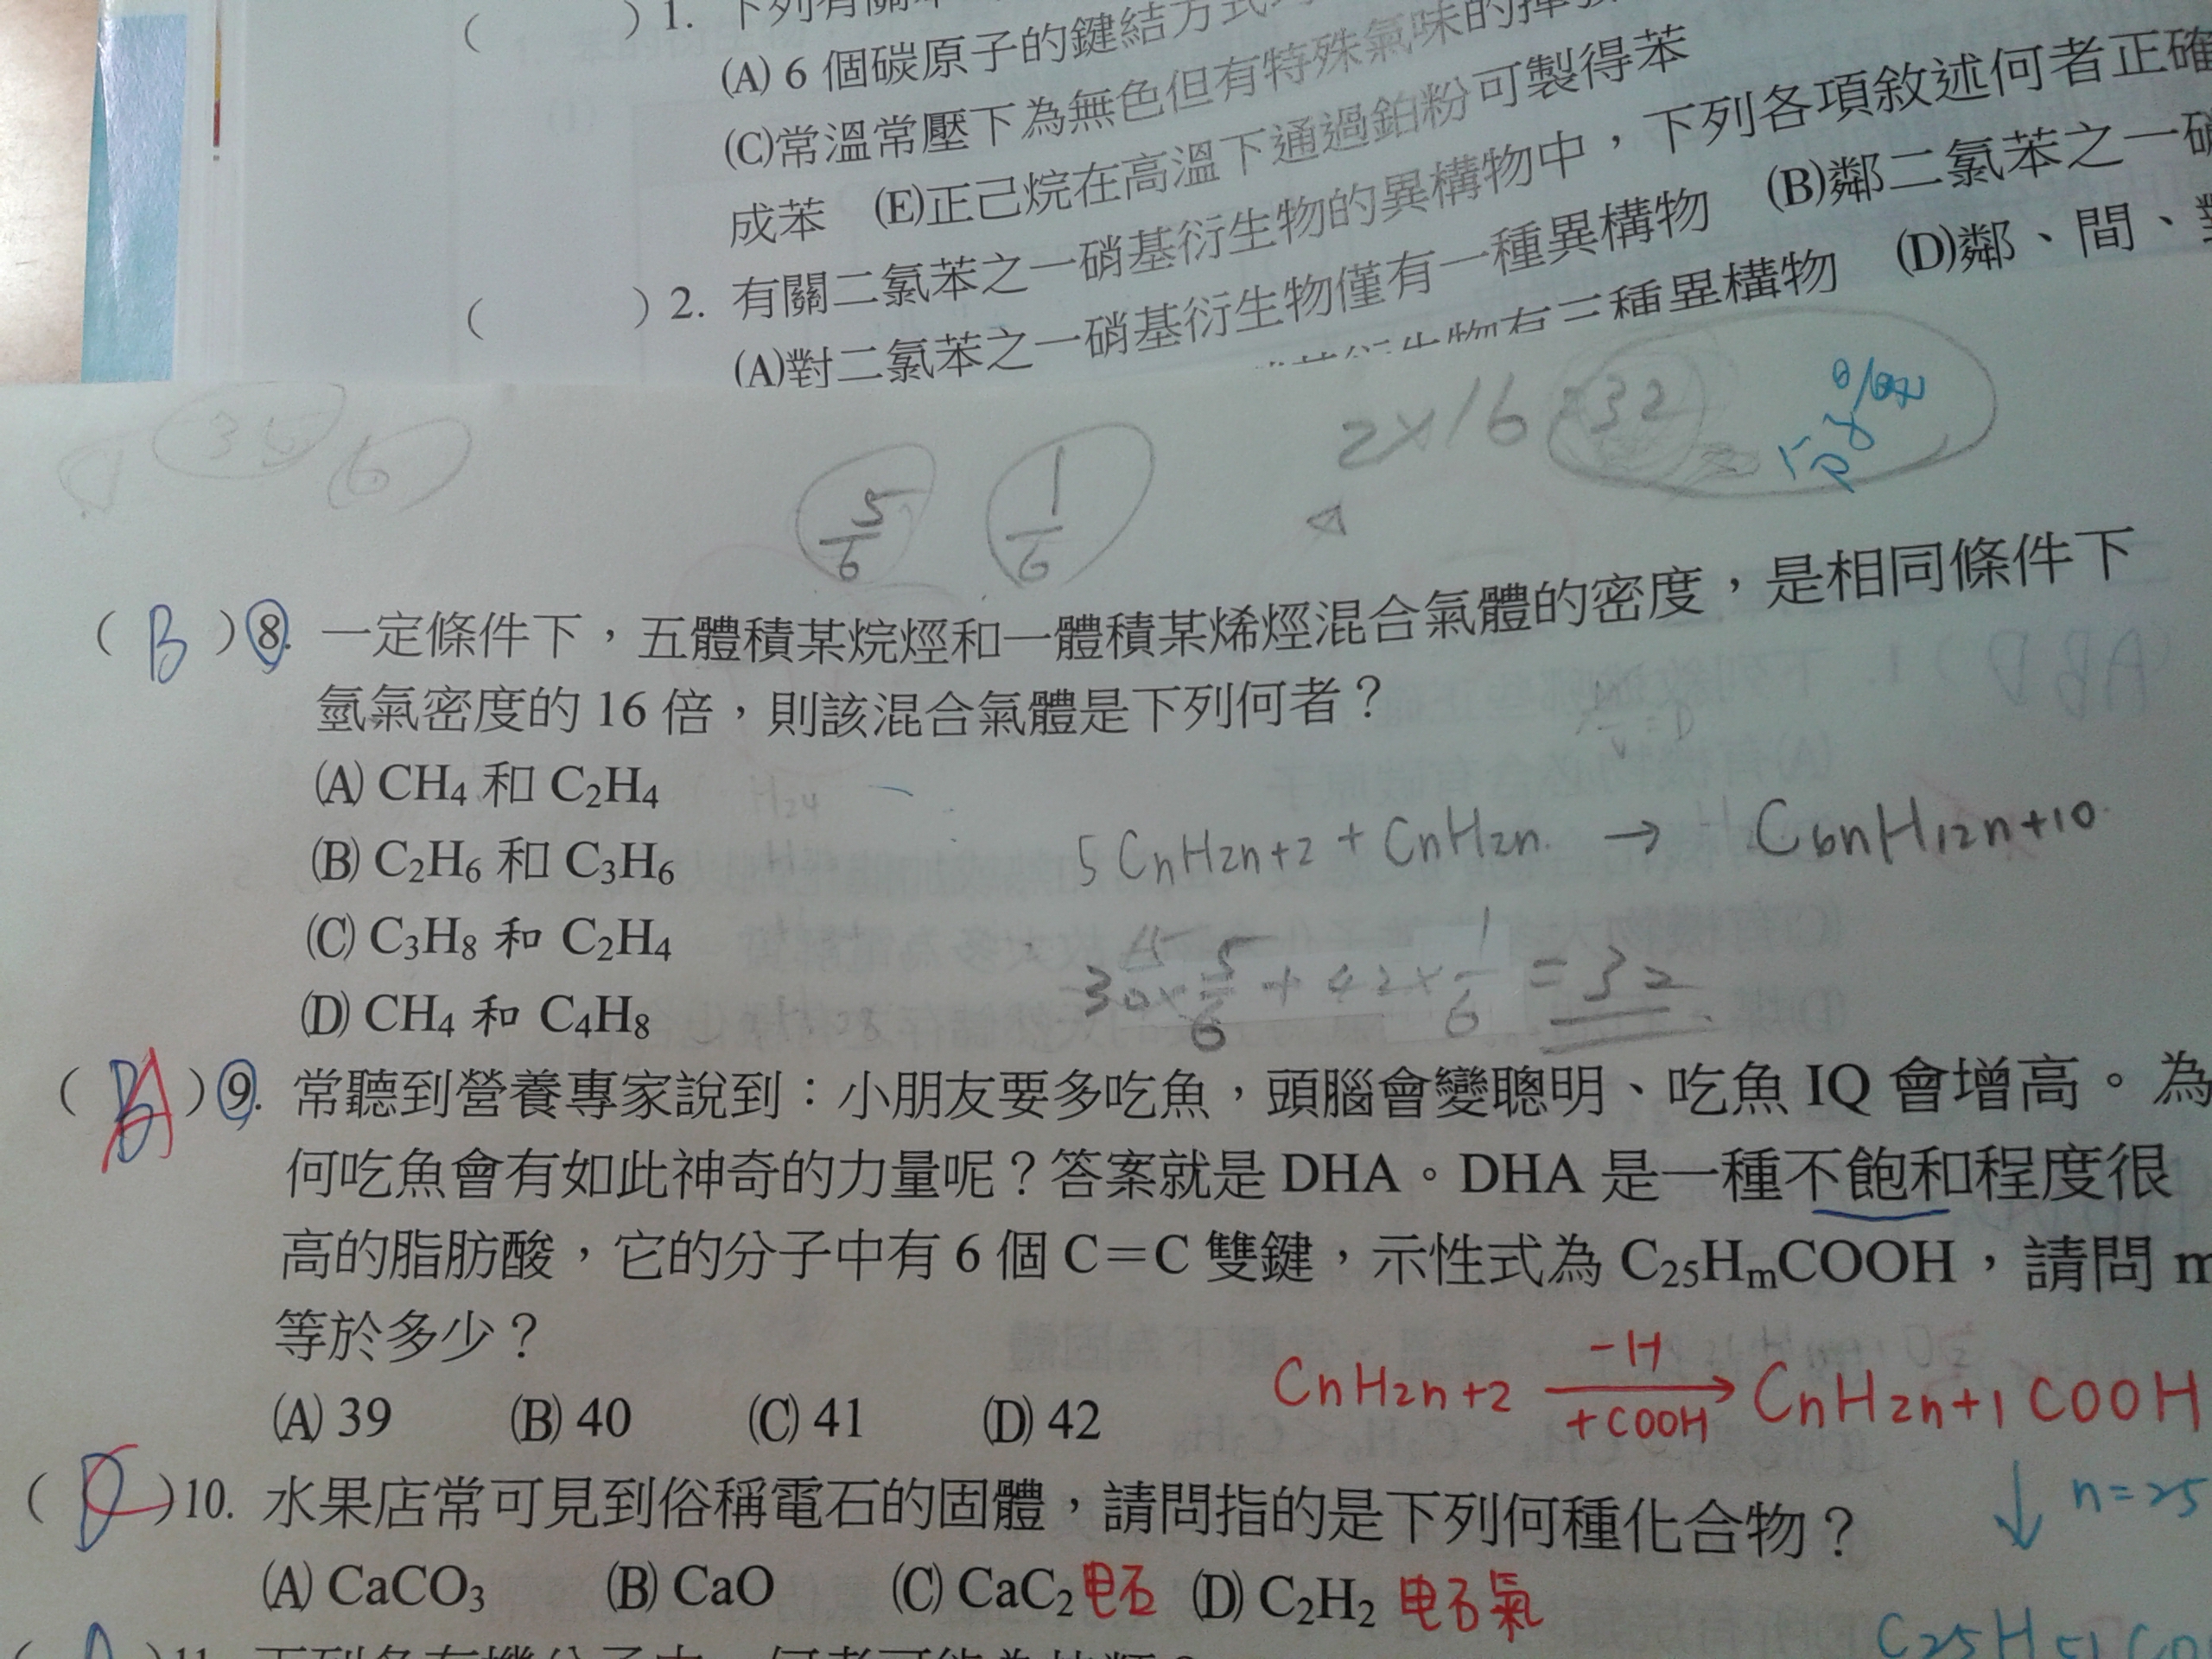 ( ) 1. 下列有關
(A) 6 個碳原子的鍵結方式
(C)常溫常壓下為無色但有特殊氣味的揮
成苯 (E)正己烷在高溫下通過鉑粉可製得苯
( ) 2. 有關二氯苯之一硝基衍生物的異構物中，下列各項敘述何者正確
(A)對二氯苯之一硝基衍生物僅有一種異構物 (B)鄰二氯苯之一硝
生物有三種異構物 (D)鄰、間、對
35 6
5/6 1/6 2×16 = 32
( B ) 8. 一定條件下，五體積某烷烴和一體積某烯烴混合氣體的密度，是相同條件下
氫氣密度的 16 倍，則該混合氣體是下列何者？
(A) CH4 和 C2H4
(B) C2H6 和 C3H6
5 CnH2n+2 + CnH2n → C6nH12n+10
(C) C3H8 和 C2H4
(D) CH4 和 C4H8
30 × 5/6 + 42 × 1/6 = 32
( A ) 9. 常聽到營養專家說到：小朋友要多吃魚，頭腦會變聰明、吃魚 IQ 會增高。為
何吃魚會有如此神奇的力量呢？答案就是 DHA。DHA 是一種不飽和程度很
高的脂肪酸，它的分子中有 6 個 C＝C 雙鍵，示性式為 C25HmCOOH，請問 m
等於多少？
CnH2n+2 -H +COOH → CnH2n+1 COOH
(A) 39 (B) 40 (C) 41 (D) 42
↓ n=25
( C ) 10. 水果店常可見到俗稱電石的固體，請問指的是下列何種化合物？
(A) CaCO3 (B) CaO (C) CaC2 电石 (D) C2H2 电石氣
C25H51CO